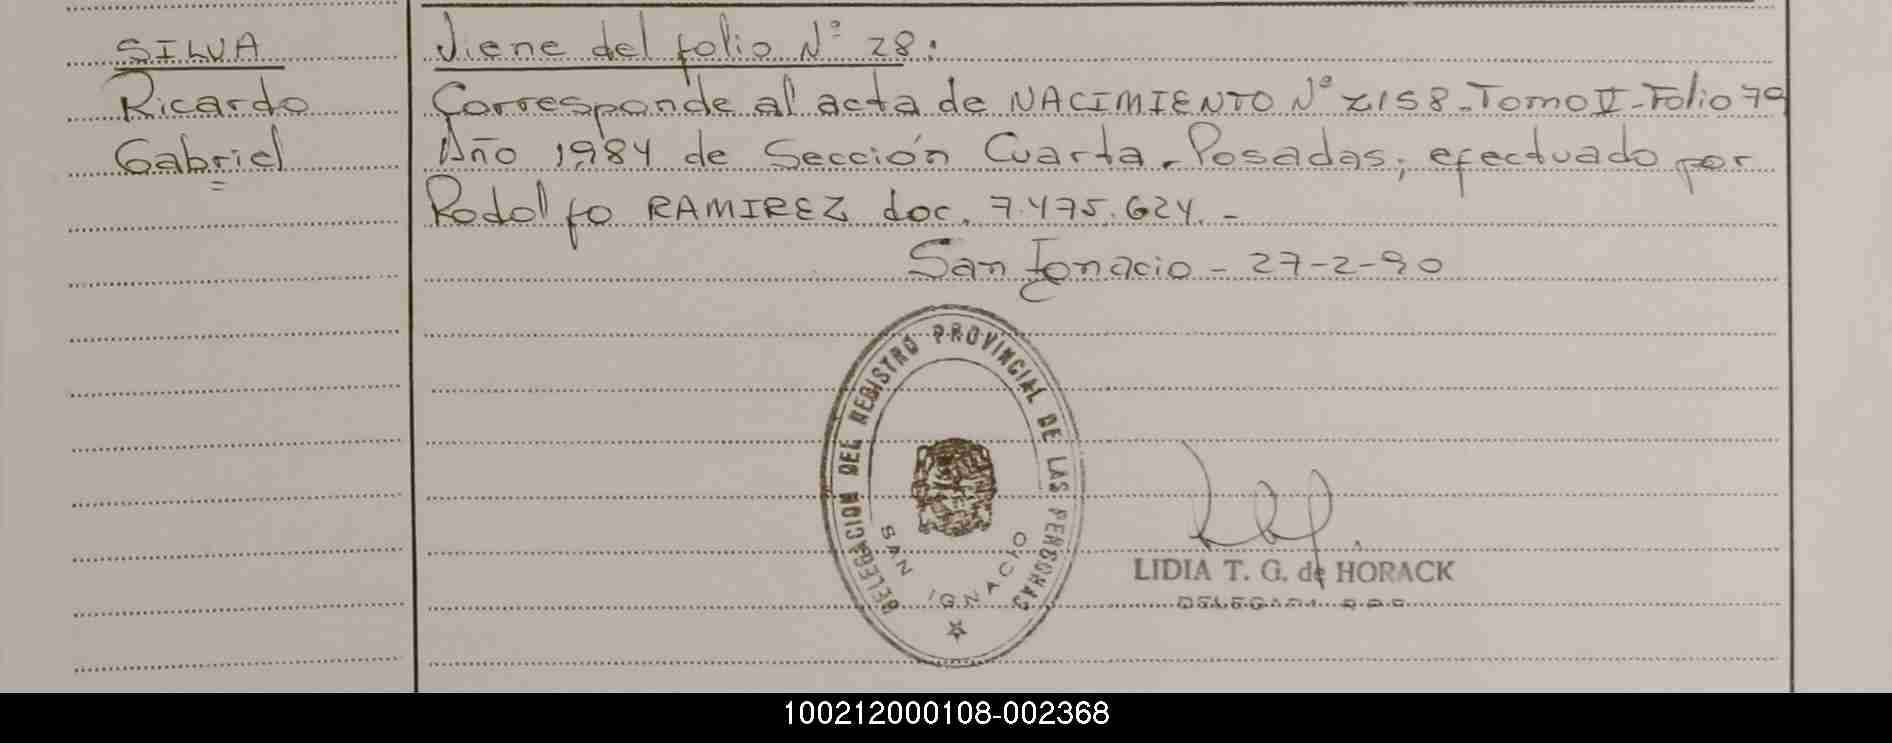 SILVA
Ricardo
Gabriel
Viene del folio Nº 28:
Corresponde al acta de NACIMIENTO Nº 2158-Tomo II-Folio 79
Año 1984 de Sección Cuarta-Posadas, efectuado por
Rodolfo RAMIREZ doc. 7.475.624.-
San Ignacio - 27-2-90
DELEGACION DEL REGISTRO PROVINCIAL DE LAS PERSONAS
SAN IGNACIO
LIDIA T. G. de HORACK
DELEGADA
100212000108-002368